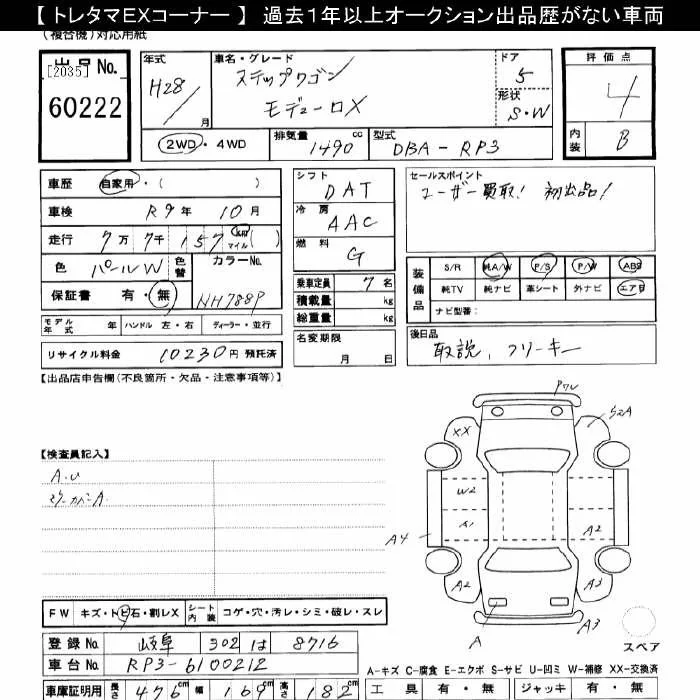 【 トレタマEXコーナー 】 過去1年以上オークション出品歴がない車両
(複合機)対応用紙
出品No. [2035] 60222
年式 H28/ 月
車名・グレード ステップワゴン モデューロX
ドア 5
形状 S・W
評価点 4
内装 B
2WD・4WD
排気量 1490 cc
型式 DBA-RP3
車歴 自家用・( )
車検 R9年 10月
走行 7万7千157 km マイル ( )
色 パールW 色替 カラーNo. NH788P
保証書 有・無
モデル年式 年 ハンドル 左・右 ディーラー・並行
リサイクル料金 10230円 預託済
シフト DAT
冷房 AAC
燃料 G
乗車定員 7名
積載量 kg
総重量 kg
名変期限 月 日
セールスポイント
ユーザー買取! 初出品!
装備品 S/R 純A/W P/S P/W ABS
純TV 純ナビ 革シート 外ナビ エアB
ナビ型番:
後日品
取説、フリーキー
【出品店申告欄(不良箇所・欠品・注意事項等)】
【検査員記入】
A.U
A
XX
S2A
W2
A1
A4
A2
A2
A3
A
A3
スペア
FW キズ・トビ石・割レX シート内装 コゲ・穴・汚レ・シミ・破レ・スレ
登録No. 岐阜 302 は 8716
車台No. RP3-6100212
車庫証明用 長さ 476cm 幅 169cm 高さ 182cm
A-キズ C-腐食 E-エクボ S-サビ U-凹ミ W-補修 XX-交換済
工具 有・無 ジャッキ 有・無